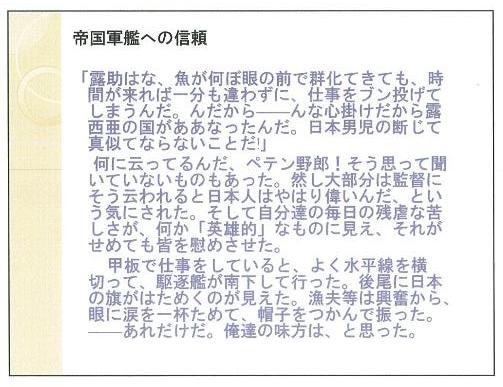 帝国軍艦への信頼
「露助はな、魚が何ぼ眼の前で群化てきても、時
間が来れば一分も違わずに、仕事をブン投げて
しまうんだ。んだから――んな心掛けだから露
西亜の国がああなったんだ。日本男児の断じて
真似てならないことだ!」
何に云ってるんだ、ペテン野郎！そう思って聞
いていないものもあった。然し大部分は監督に
そう云われると日本人はやはり偉いんだ、とい
う気にされた。そして自分達の毎日の残虐な苦
しさが、何か「英雄的」なものに見え、それが
せめても皆を慰めさせた。
甲板で仕事をしていると、よく水平線を横
切って、駆逐艦が南下して行った。後尾に日本
の旗がはためくのが見えた。漁夫等は興奮から、
眼に涙を一杯ためて、帽子をつかんで振った。
――あれだけだ。俺達の味方は、と思った。